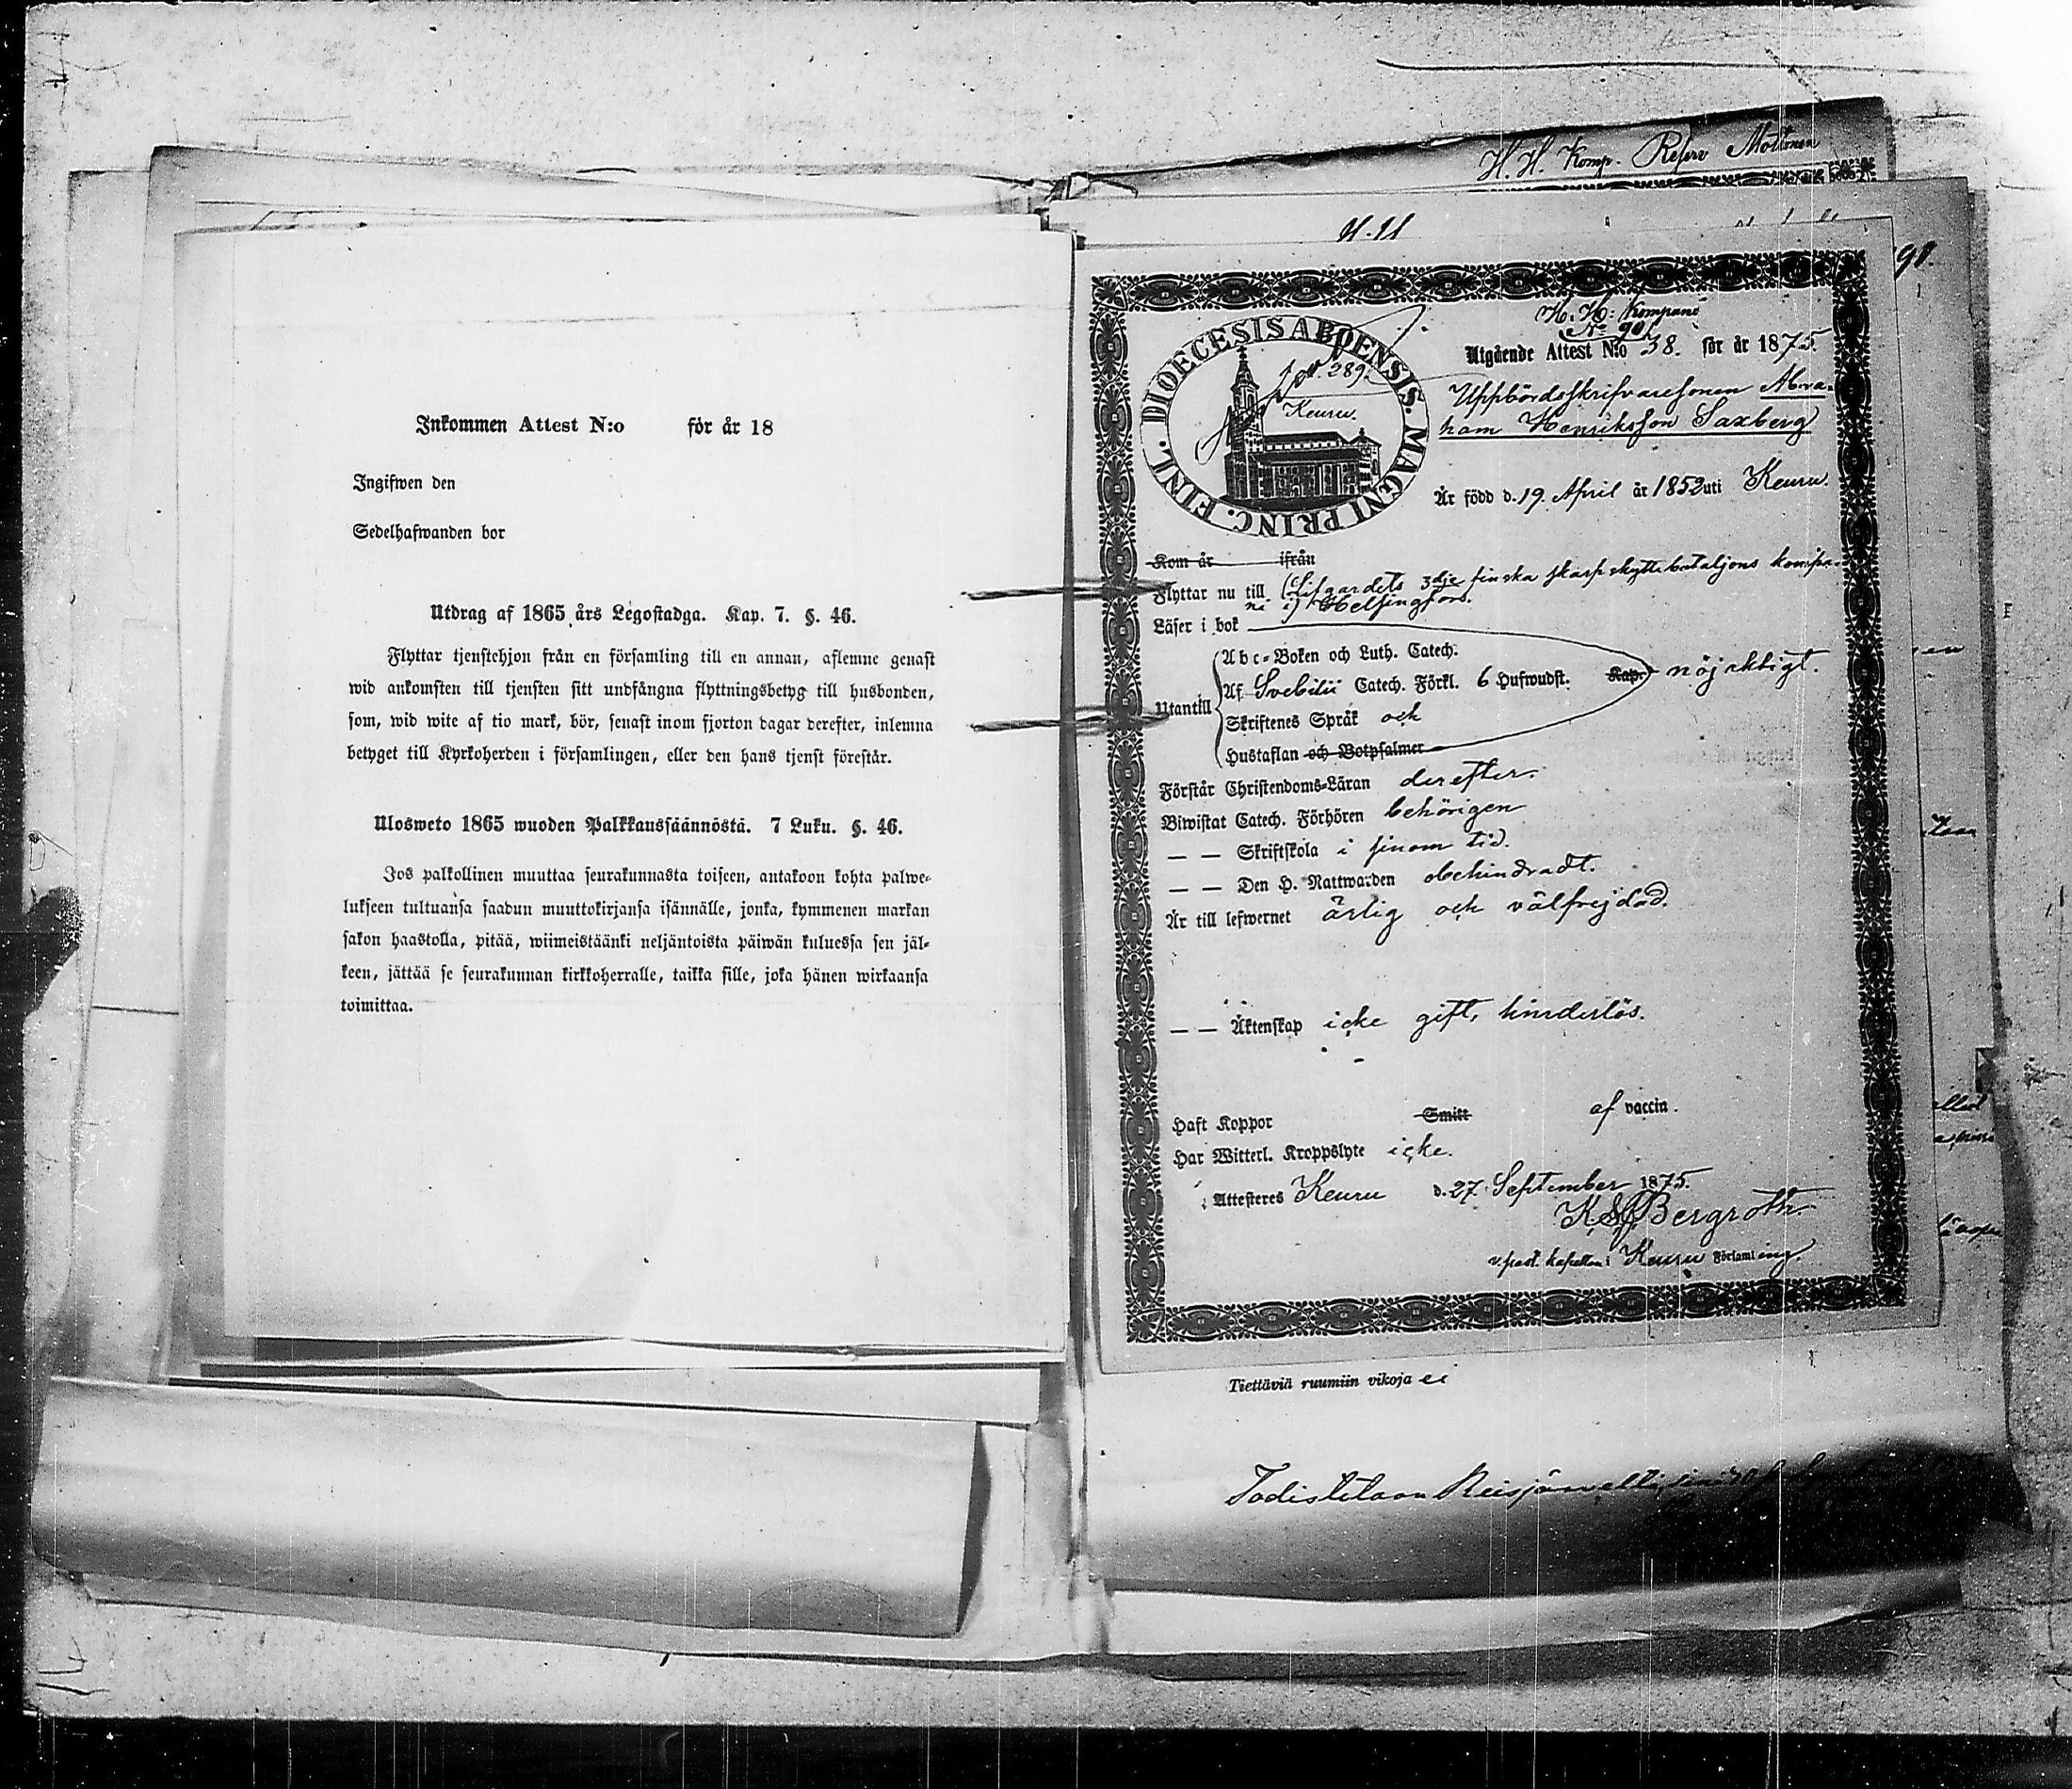 Inkommen Attest N:o för år 18
Ingifwen den
Sedelhafwanden bor
Utdrag af 1865 års Legostadga. Kap. 7. §. 46.
Flyttar tjenstehjon från en församling till en annan, aflemne genast
wid ankomsten till tjensten sitt undfångna flyttningsbetyg till husbonden,
som, wid wite af tio mark, bör, senast inom fjorton dagar derefter, inlemna
betyget till Kyrkoherden i församlingen, eller den hans tjenst förestår.
Ulosweto 1865 wuoden Palkkaussäännöstä. 7 Luku. §. 46.
Jos palkollinen muuttaa seurakunnasta toiseen, antakoon kohta palwe-
lukseen tultuansa saadun muuttokirjansa isännälle, jonka, kymmenen markan
sakon haastolla, pitää, wiimeistäänki neljäntoista päiwän kuluessa sen jäl-
keen, jättää se seurakunnan kirkkoherralle, taikka sille, joka hänen wirkaansa
toimittaa.
H. H. Komp. Reserv Möttönen
90.
H. H. Kompani
N:o 90
DIOECESIS ABOENSIS. MAGNI PRINC. FINL.
289.
Keuru.
Utgående Attest N:o 38. för år 1875.
Uppbördsskrifvaresonen Abra-
ham Henriksson Saxberg
Är född d. 19. April år 1852 uti Keuru.
Kom år ifrån
Flyttar nu till Lifgardets 3dje finska skarpskyttebataljons kompa-
ni i) Helsingfors.
Läser i bok
Utantill
Abc-Boken och Luth. Catech.
Af Svebilii Catech. Förkl. 6 Hufwudst. Kap. nöjaktigt.
Skriftenes Språk och
Hustaflan och Botpsalmer
Förstår Christendoms-Läran derefter.
Biwistat Catech. Förhören behörigen
— — Skriftskola i sinom tid.
— — Den H. Nattwarden obehindradt.
Är till lefwernet ärlig och välfrejdad.
— — Äktenskap icke gift, hinderlös.
Haft Koppor Smitt af vaccin.
Har Witterl. Kroppslyte icke.
Attesteres Keuru d. 27 September 1875.
Bergroth
v. past. kapellan i Keuru Församling.
Tiettäviä ruumiin vikoja ei
Todistetaan Reisjärvellä